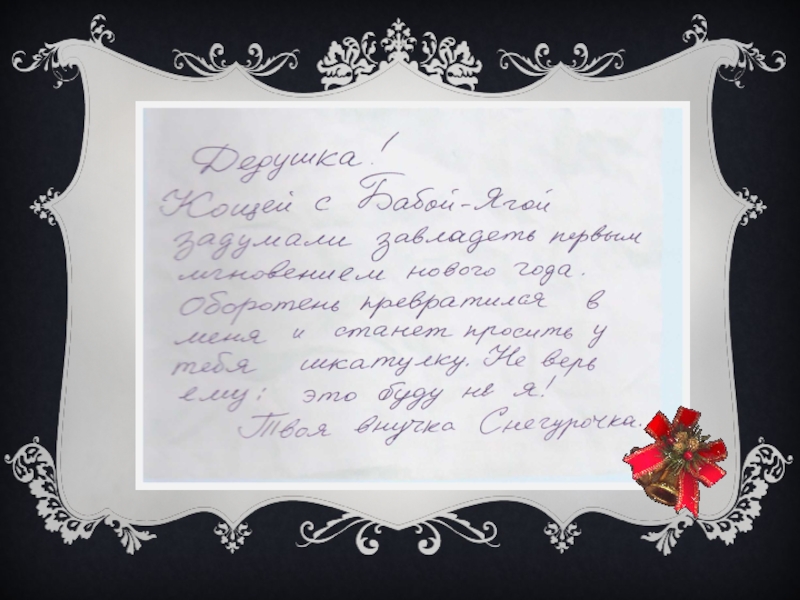 Дедушка!
Кощей с Бабой-Ягой
задумали завладеть первым
мгновением нового года.
Оборотень превратился в
меня и станет просить у
тебя шкатулку. Не верь
ему: это буду не я!
Твоя внучка Снегурочка.